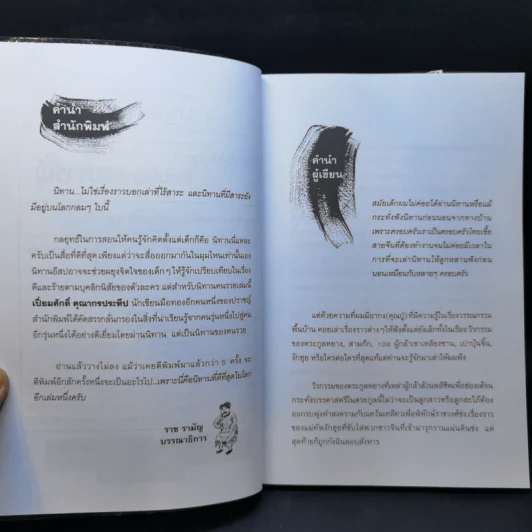 คำนำ
สำนักพิมพ์
นิทาน...ไม่ใช่เรื่องราวบอกเล่าที่ไร้สาระ และนิทานที่มีสาระยัง
มีอยู่บนโลกกลมๆ ใบนี้
กลยุทธ์ในการสอนให้คนรู้จักคิดตั้งแต่เด็กก็คือ นิทานนี่แหละ
ครับเป็นสื่อที่ดีที่สุด เพียงแต่ว่าจะสื่อออกมากันในมุมไหนเท่านั้นเอง
นิทานอีสปอาจจะช่วยผยุงจิตใจของเด็กๆ ให้รู้จักเปรียบเทียบในเรื่อง
ดีและร้ายตามบุคลิกนิสัยของตัวละคร แต่สำหรับนิทานคนรวยเล่มนี้
เปี่ยมศักดิ์ คุณากรประทีป นักเขียนมือทองอีกคนหนึ่งของปราชญ์
สำนักพิมพ์ได้คัดสรรกลั่นกรองในสิ่งที่น่าเรียนรู้จากคนรุ่นหนึ่งไปสู่คน
อีกรุ่นหนึ่งได้อย่างดีเยี่ยมโดยผ่านนิทาน แต่เป็นนิทานของคนรวย
อ่านแล้ววางไม่ลง แม้ว่าจะเคยตีพิมพ์มาแล้วกว่า 6 ครั้ง จะ
ตีพิมพ์อีกสักครั้งหนึ่งจะเป็นอะไรไป...เพราะนี่คือนิทานที่ดีที่สุดในโลก
อีกเล่มหนึ่งครับ
ราช รามัญ
บรรณาธิการ
คำนำ
ผู้เขียน
สมัยเด็กผมไม่ค่อยได้อ่านนิทานหรือแม้
กระทั่งฟังนิทานก่อนนอนจากทางบ้าน
เพราะครอบครัวเราเป็นครอบครัวไทยเชื้อ
สายจีนที่ต้องทำงานจนไม่ค่อยมีเวลาใน
การที่จะเล่านิทานให้ลูกหลานฟังก่อน
นอนเหมือนกับหลายๆ ครอบครัว
แต่ด้วยความที่ผมมียากง (คุณปู่) ที่มีความรู้ในเรื่องวรรณกรรม
พื้นบ้าน คอยเล่าเรื่องราวต่างๆ ให้ฟังตั้งแต่ยังเล็กทั้งในเรื่อง วีรกรรม
ของตระกูลหยาง, สามก๊ก, 108 ผู้กล้าเขาเหลียงซาน, เปาบุ้นจิ้น,
งักฮุย หรือใครต่อใครที่สุดแท้แต่ท่านจะรู้จักมาเล่าให้ผมฟัง
วีรกรรมของตระกูลหยางที่เหล่าผู้กล้าตัวพลีชีพเพื่อช่องเต้จน
กระทั่งบรรดาสตรีในตระกูลนี้ไม่ว่าจะเป็นลูกสาวหรือลูกสะใภ้ต้อง
ออกรบพุ่งทำสงครามกับแคว้นเหลียวเพื่อพิทักษ์ราชวงศ์ซ่ง เรื่องราว
ของแม่ทัพงักฮุยที่ขับไล่พวกชาวจีนที่เข้ามารุกรานแผ่นดินซ่ง แต่
สุดท้ายก็ถูกกังฉินลอบสังหาร